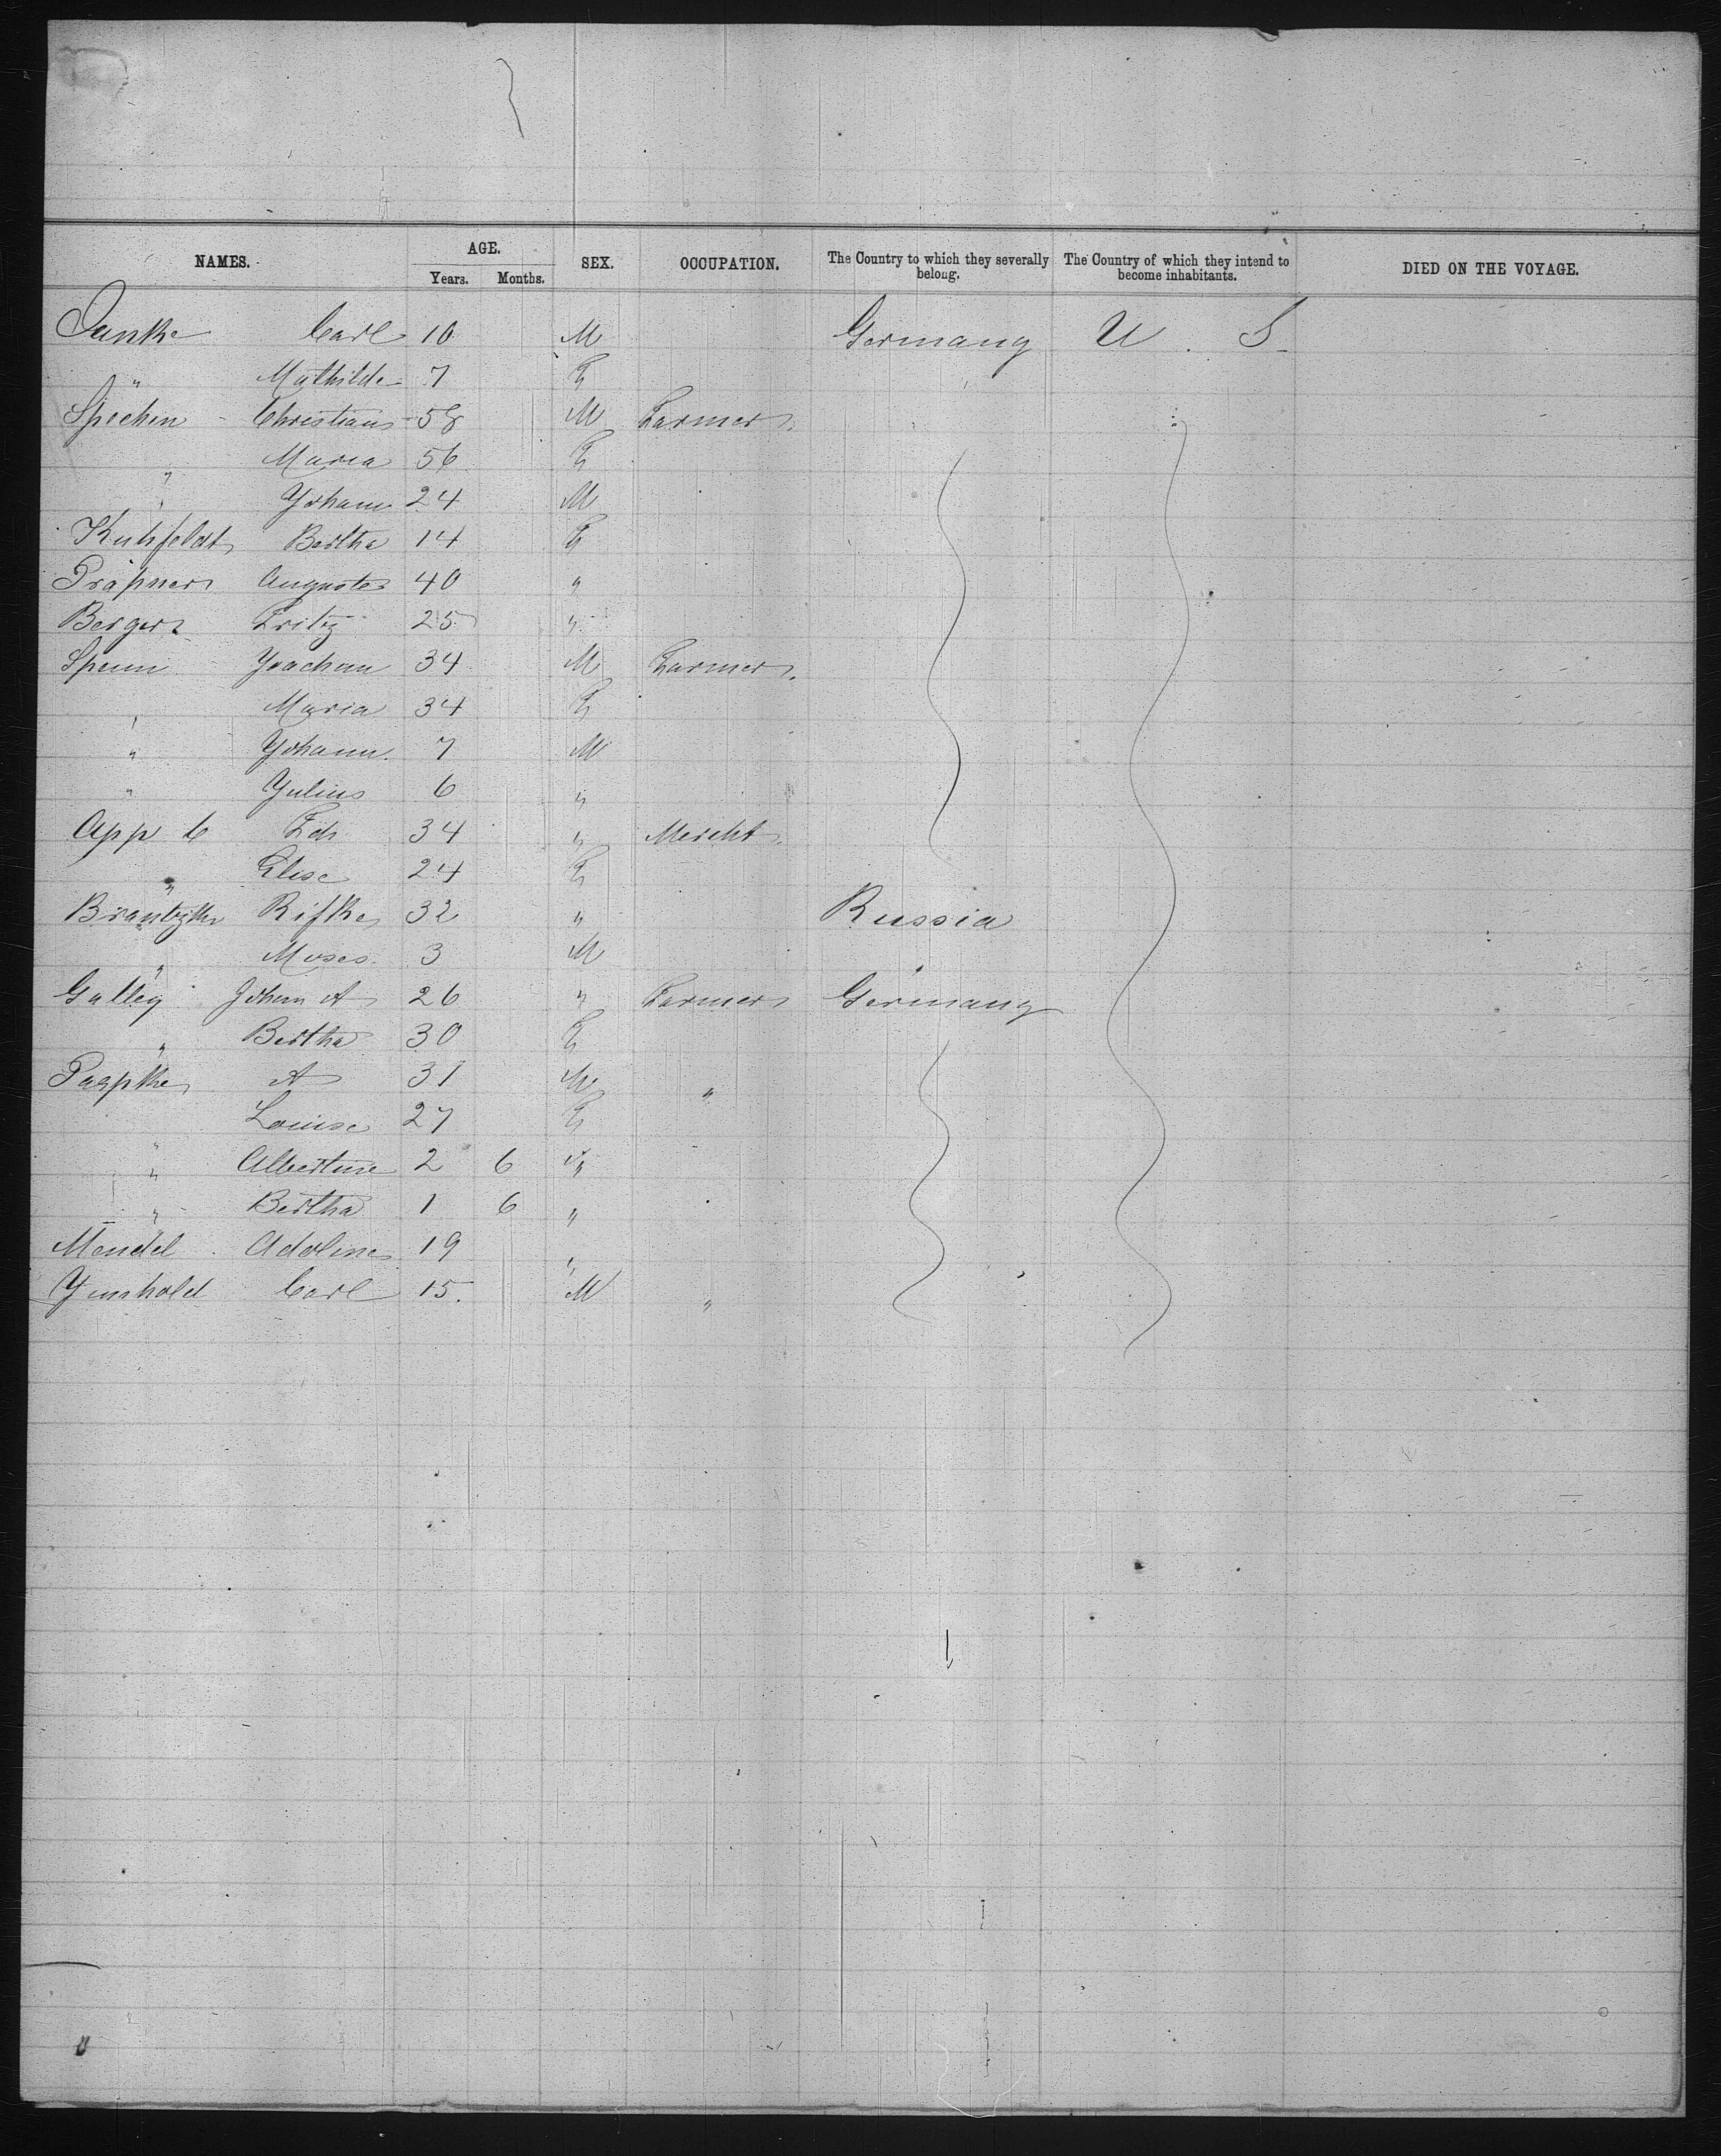 NAMES. AGE. SEX. OCCUPATION. The Country to which they severally belong. The Country of which they intend to become inhabitants. DIED ON THE VOYAGE.
Years. Months.
Danke Carl 10 M Germany U. S.
" Mathilde 7 F
Spechen Christian 58 M Farmer
" Maria 56 F
" Johann 24 M
Kuhfeldt Bertha 14 F
Auguste 40 "
Berger Fritz 25 "
Spenn Joachim 34 M Farmer.
" Maria 34 F
" Johann 7 M
" Julius 6 "
App 34 " Mercht.
" Elise 24 F
Rifke 32 " Russia
" Moses 3 M
Galley Johann A 26 " Farmer Germany
" Bertha 30 F
Paspke A 31 M "
Louise 27 F
" Albertine 2 6 "
" Bertha 1 6 "
Mendel Adoline 19 "
Carl 15. M "